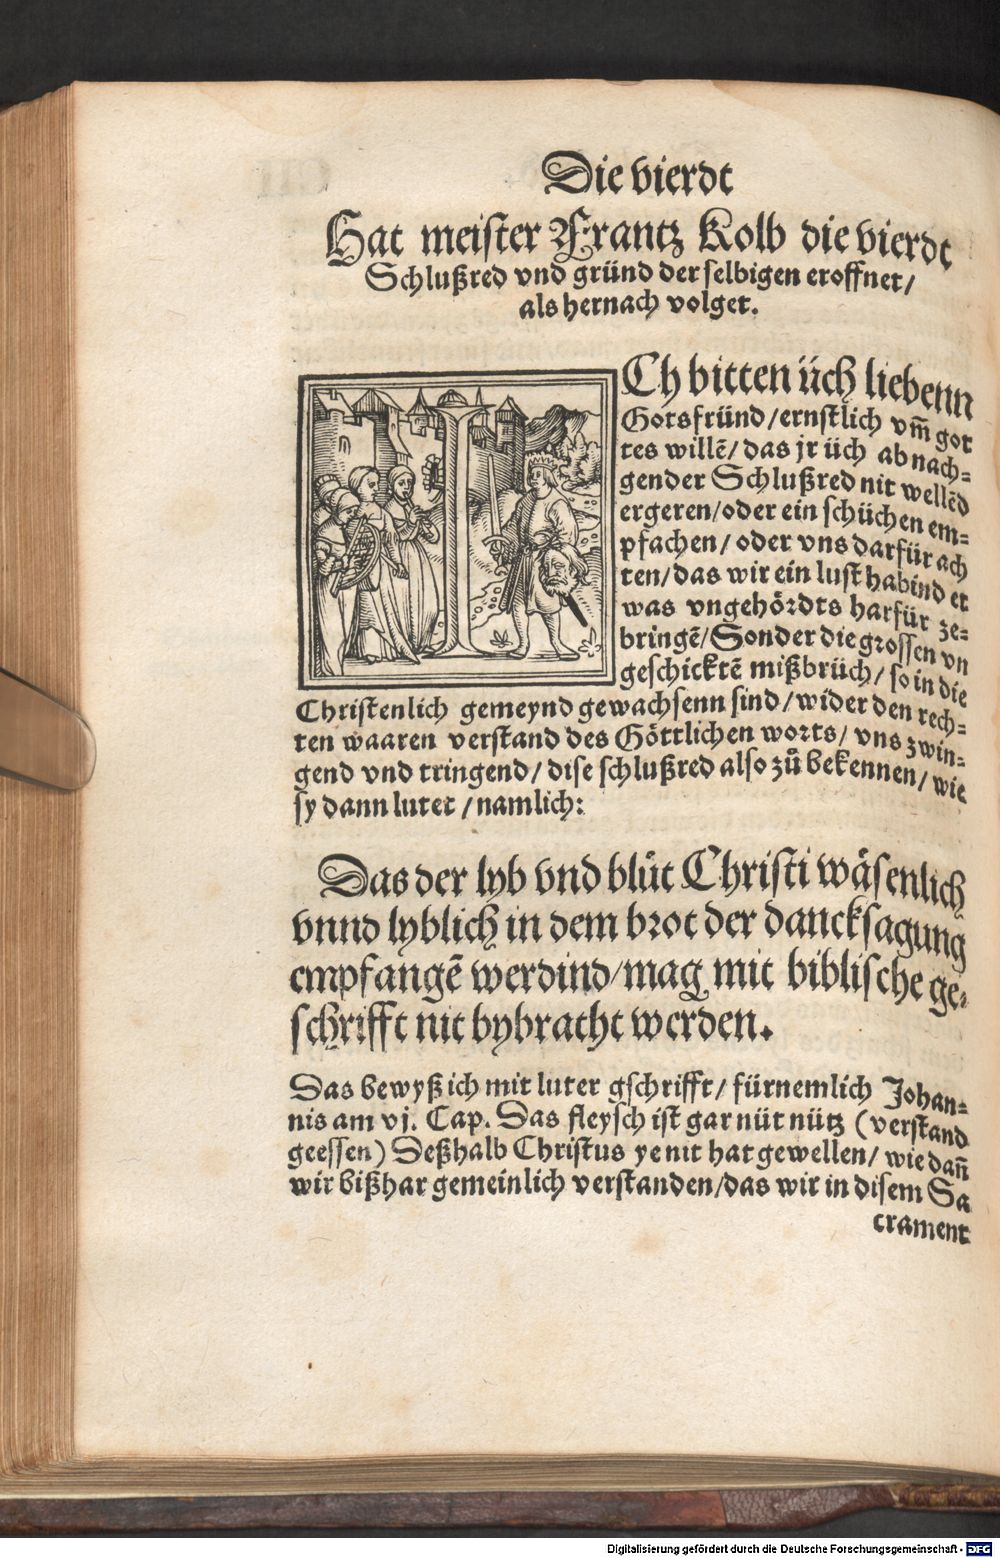 Die vierdt
Hat meister Frantz Kolb die vierdt
Schlußred vnd gründ der selbigen eroffnet/
als hernach volget.
ICh bitten üch liebenn
Gotsfründ/ernstlich vm̃ got
tes willẽ/das jr üch ab nach-
gender Schlußred nit wellẽd
ergeren/oder ein schüchen em-
pfachen/oder vns darfür ach
ten/das wir ein lust habind et
was vngehördts harfür ze-
bringẽ/Sonder die grossen vn
geschicktẽ mißbrüch/so in die
Christenlich gemeynd gewachsenn sind/wider den rech-
ten waaren verstand des Göttlichen worts/vns zwin-
gend vnd tringend/dise schlußred also zů bekennen/wie
sy dann lutet/namlich:
Das der lyb vnd blůt Christi wäsenlich
vnnd lyblich in dem brot der dancksagung
empfangẽ werdind/mag mit biblische ge-
schrifft nit bybracht werden.
Das bewyß ich mit luter gschrifft/fürnemlich Johan-
nis am vj. Cap. Das fleysch ist gar nüt nütz (verstand
geessen) Deßhalb Christus ye nit hat gewellen/wie dañ
wir bißhar gemeinlich verstanden/das wir in disem Sa
crament
Digitalisierung gefördert durch die Deutsche Forschungsgemeinschaft - DFG